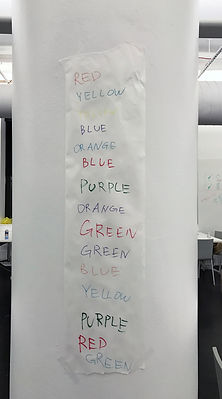 RED
YELLOW
BLUE
ORANGE
BLUE
PURPLE
ORANGE
GREEN
GREEN
BLUE
YELLOW
PURPLE
RED
GREEN